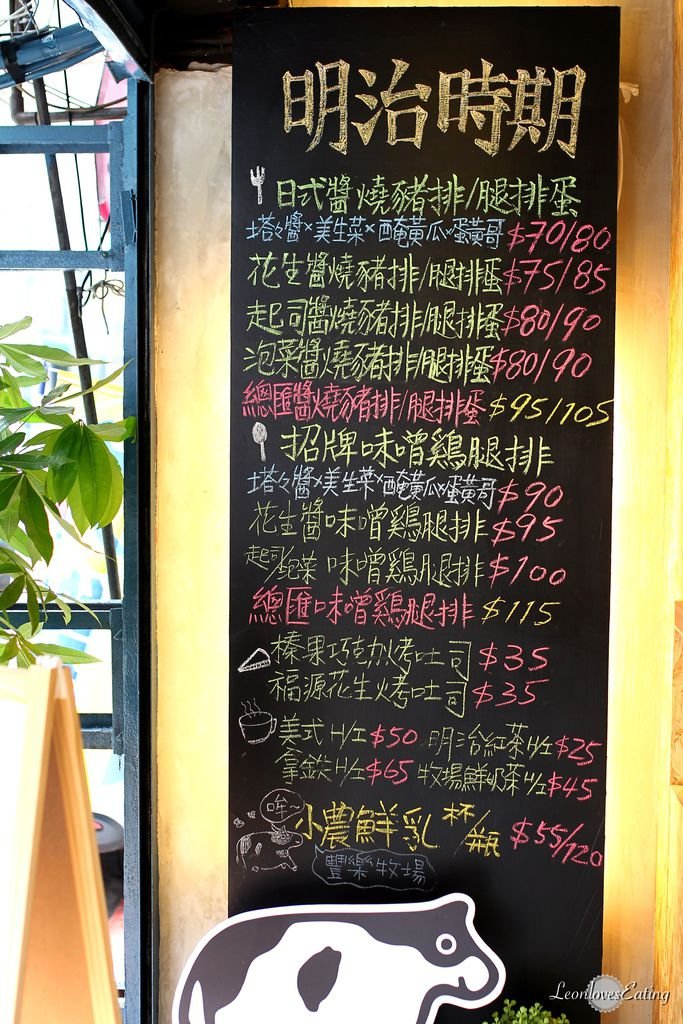 明治時期
日式醬燒豬排/腿排蛋
塔々醬×美生菜×醃黃瓜×蛋黃哥 $70/80
花生醬燒豬排/腿排蛋 $75/85
起司醬燒豬排/腿排蛋 $80/90
泡菜醬燒豬排/腿排蛋 $80/90
總匯醬燒豬排/腿排蛋 $95/105
招牌味噌鷄腿排
塔々醬×美生菜×醃黃瓜×蛋黃哥 $90
花生醬味噌鷄腿排 $95
起司/泡菜 味噌鷄腿排 $100
總匯味噌鷄腿排 $115
榛果巧克力烤吐司 $35
福源花生烤吐司 $35
美式 H/I $50 明治紅茶 H/I $25
拿鉄 H/I $65 牧場鮮奶茶 H/I $45
哞~
小農鮮乳 杯/瓶 $55/120
豐樂牧場
LeonlovesEating